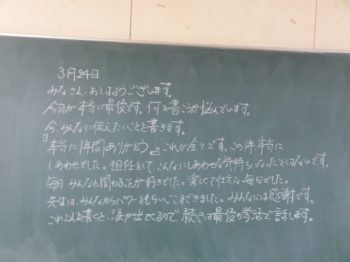 3月24日
みなさん、おはようございます。
今日が本当に最後です。何を書こうか悩んでいます。
今、みんなに伝えたいことを書きます。
『本当に1年間ありがとう。』これが全てです。この1年本当に
しあわせでした。担任として、こんなにしあわせな気持ちになったことはないです。
毎日、みんなと関わることが好きでした。楽しくて仕方ない毎日でした。
先生は、みんなからパワーをもらい、ここまできました。みんなには感謝です。
これ以上書くと、涙が出てくるので、続きは最後の学活で話します。